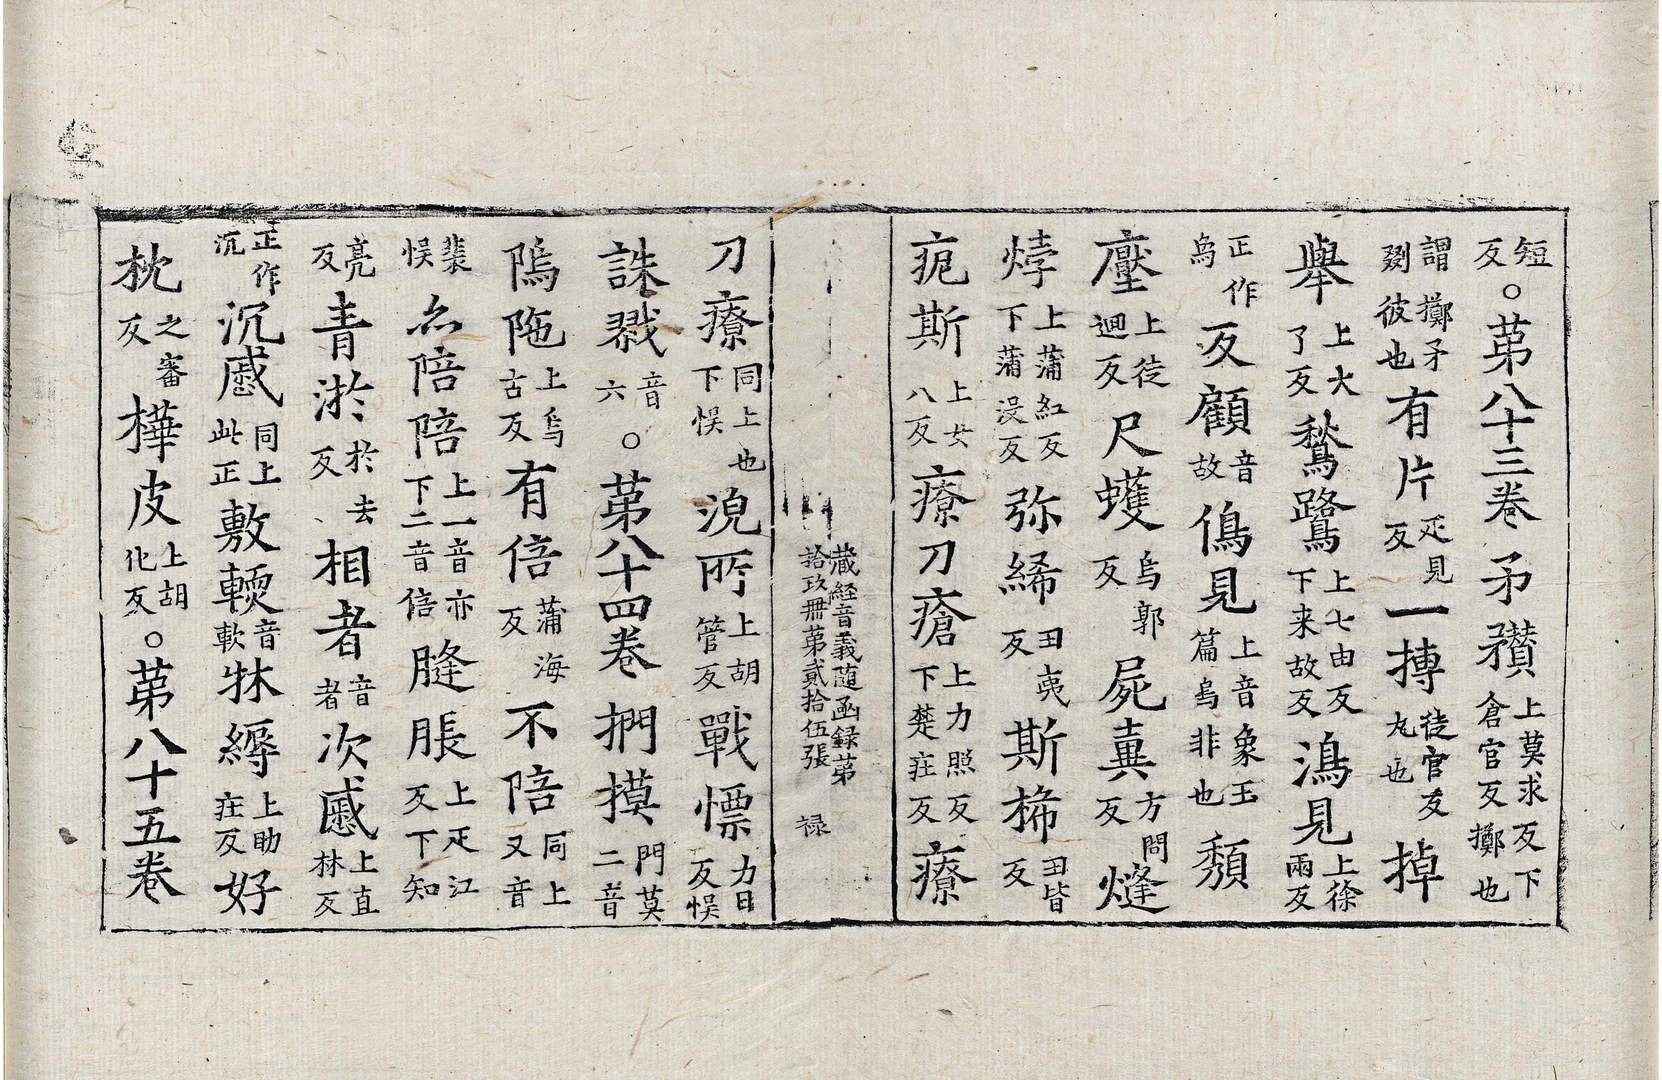 短反。苐八十三卷矛穳上莫求反下倉官反擲也
謂擲矛剟彼也有片疋見反一摶徒官反丸也掉
舉上大了反鶖鷺上七由反下来故反潒見上徐兩反
正作爲反顧音故僞見上音象玉篇爲非也頽
壓上徒迴反尺蠖烏郭反屍糞方問反熢
㶿上蒲紅反下蒲没反弥絺田夷反斯㮛田皆反
㾏斯上女八反療刀瘡上力照反下楚㽵反療
藏経音義随函録苐拾玖冊苐貳拾伍張 禄
刀療同上也下悮涀所上胡管反戰慓力日反悮
誅戮音六。苐八十四卷捫摸門莫二音
隝陁上烏古反有倍蒲海反不陪同上又音
裴悮尒陪陪上一音亦下二音倍膖脹上疋江反下知
亮反青淤於去反相者音者次戚上直林反
正作沉沉戚同上此正敷䡔音軟牀縟上助㽵反好
枕之審反樺皮上胡化反。苐八十五卷